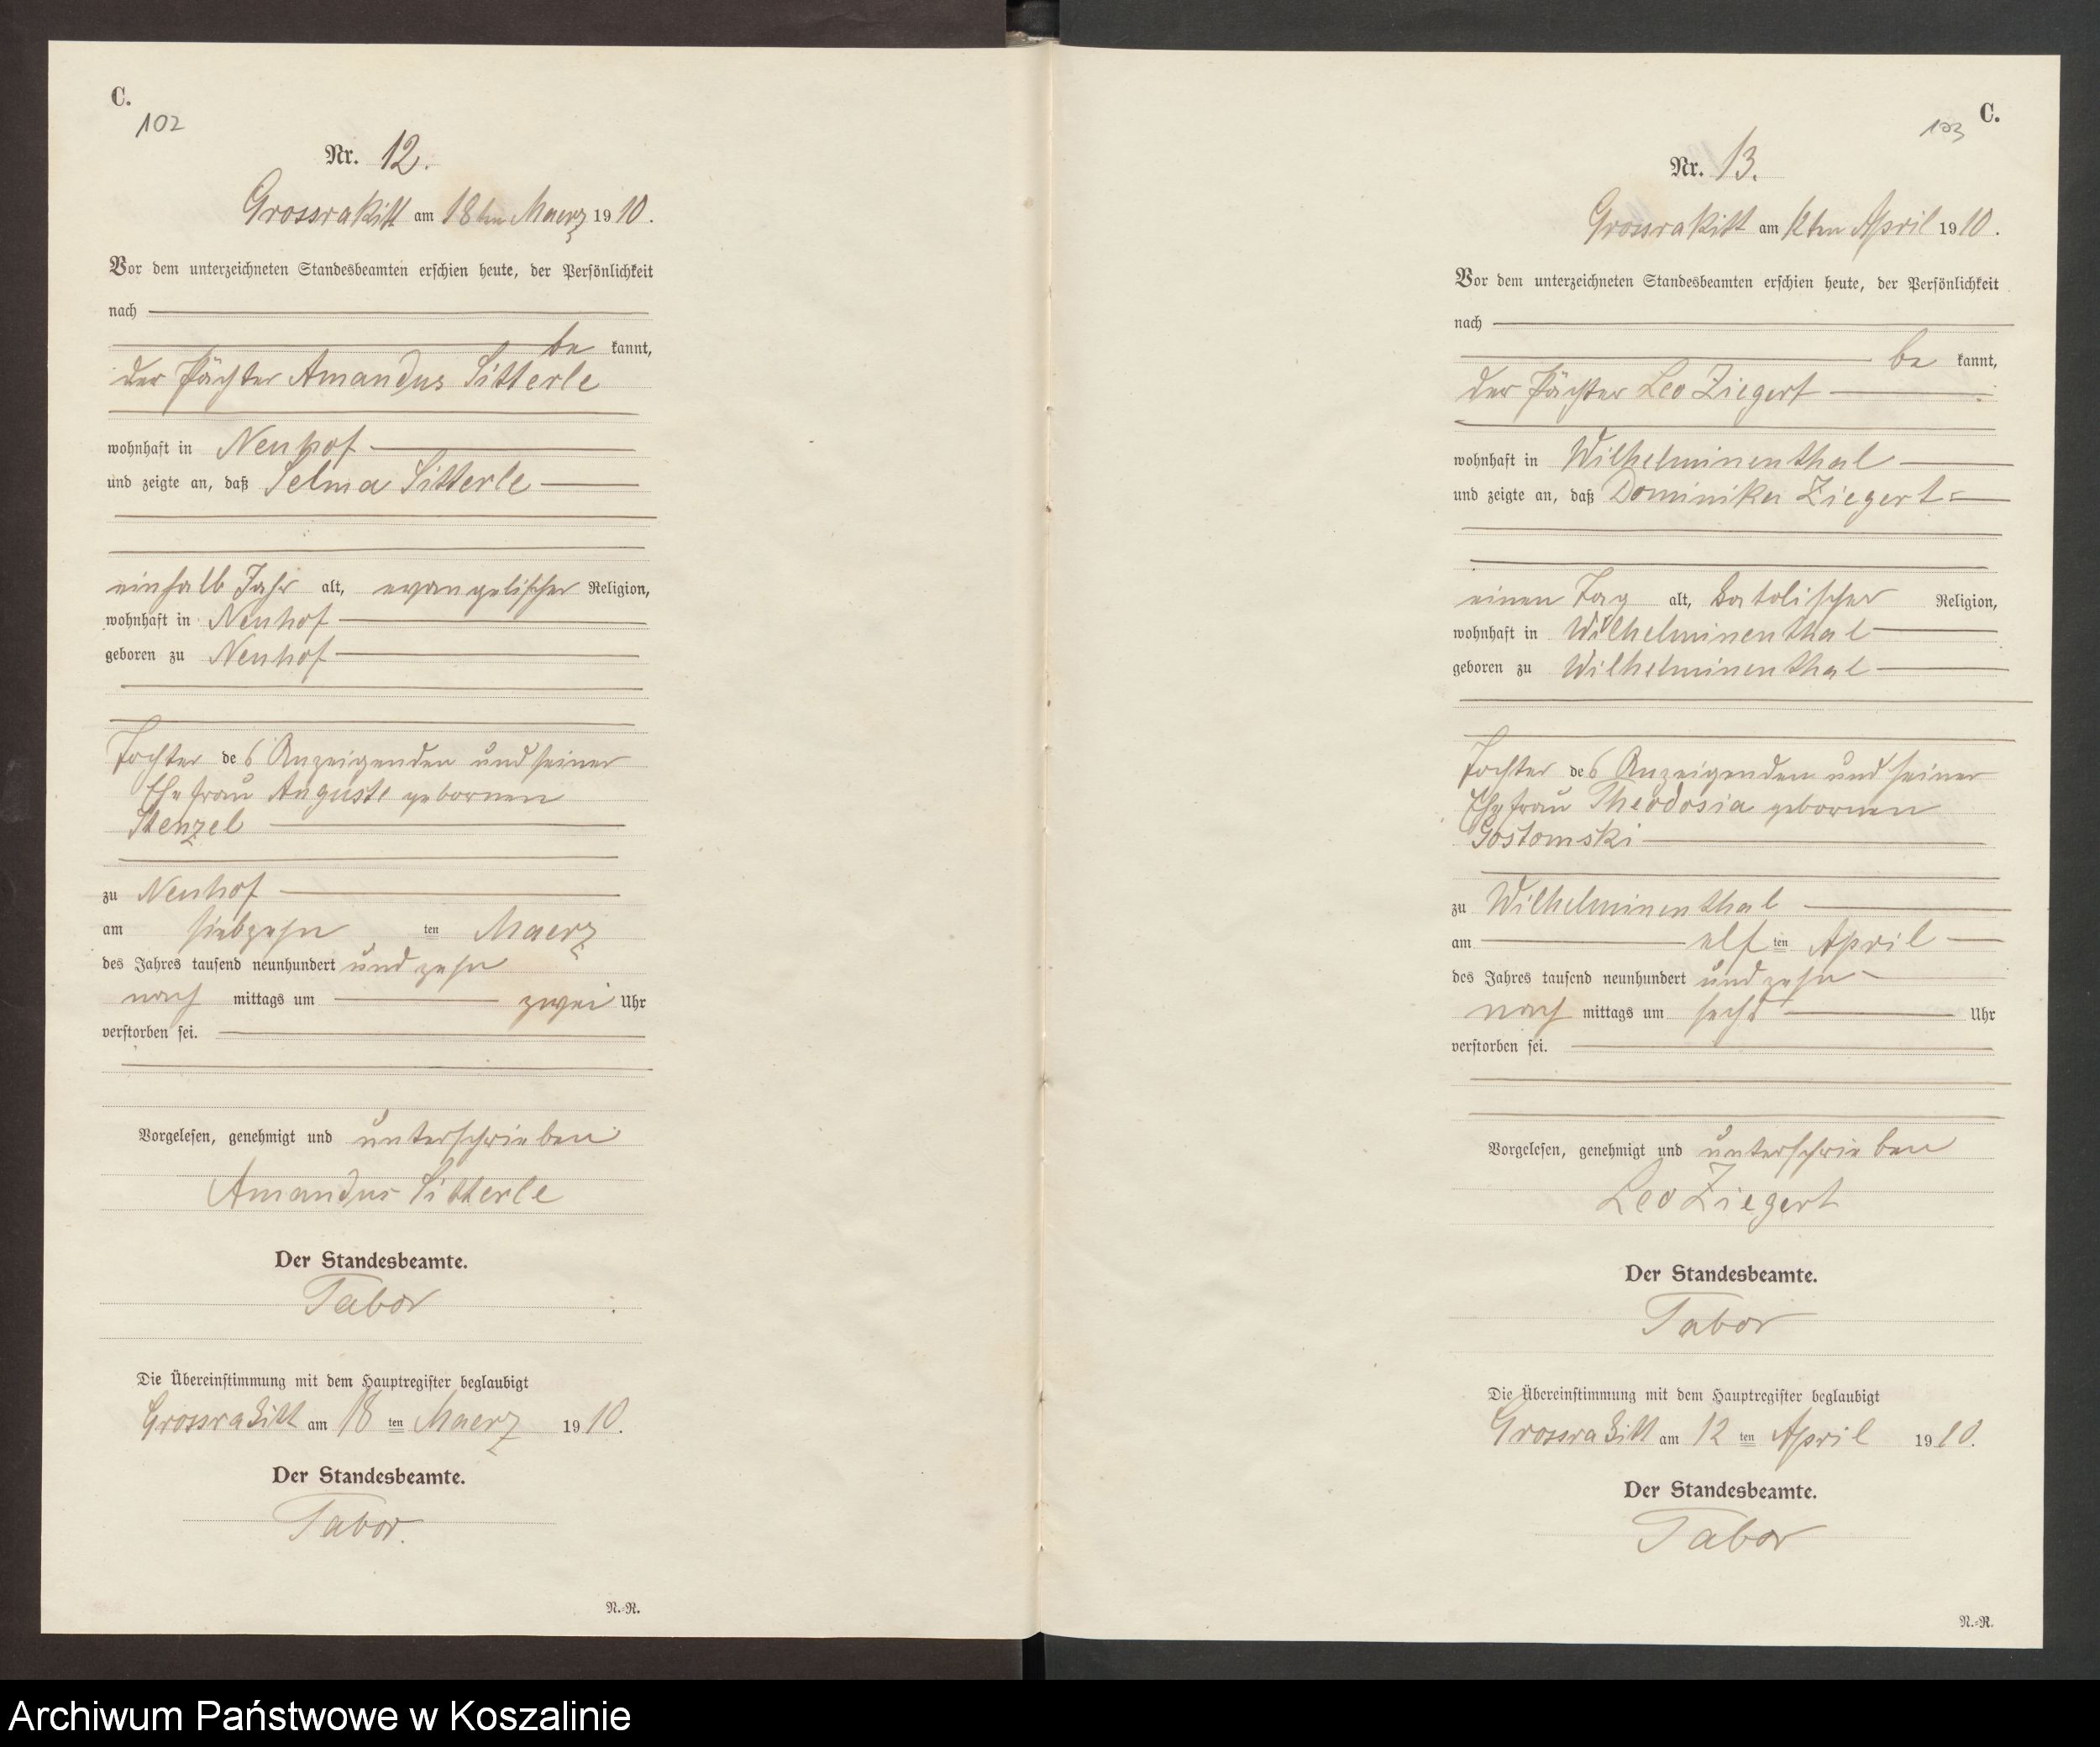 C.
102
Nr. 12.
Grossrakitt am 18ten Maerz 1910.
Vor dem unterzeichneten Standesbeamten erschien heute, der Persönlichkeit
nach
be kannt,
der Pächter Amandus Sitterle
wohnhaft in Neuhof
und zeigte an, daß Selma Sitterle
einhalb Jahr alt, evangelischer Religion,
wohnhaft in Neuhof
geboren zu Neuhof
Tochter des Anzeigenden und seiner
Ehefrau Auguste gebornen
Stenzel
zu Neuhof
am siebzehn ten Maerz
des Jahres tausend neunhundert und zehn
nach mittags um zwei Uhr
verstorben sei.
Vorgelesen, genehmigt und unterschrieben
Amandus Sitterle
Der Standesbeamte.
Tabor
Die Übereinstimmung mit dem Hauptregister beglaubigt
Grossrakitt am 18 ten Maerz 1910.
Der Standesbeamte.
Tabor.
N.-R.
C.
103
Nr. 13.
Grossrakitt am 12ten April 1910.
Vor dem unterzeichneten Standesbeamten erschien heute, der Persönlichkeit
nach
be kannt,
der Pächter Leo Ziegert
wohnhaft in Wilhelminenthal
und zeigte an, daß Dominika Ziegert
einen Tag alt, katolischer Religion,
wohnhaft in Wilhelminenthal
geboren zu Wilhelminenthal
Tochter des Anzeigenden und seiner
Ehefrau Theodosia gebornen
Gostomski
zu Wilhelminenthal
am elf ten April
des Jahres tausend neunhundert und zehn
nach mittags um sechs Uhr
verstorben sei.
Vorgelesen, genehmigt und unterschrieben
Leo Ziegert
Der Standesbeamte.
Tabor
Die Übereinstimmung mit dem Hauptregister beglaubigt
Grossrakitt am 12 ten April 1910.
Der Standesbeamte.
Tabor
N.-R.
Archiwum Państwowe w Koszalinie